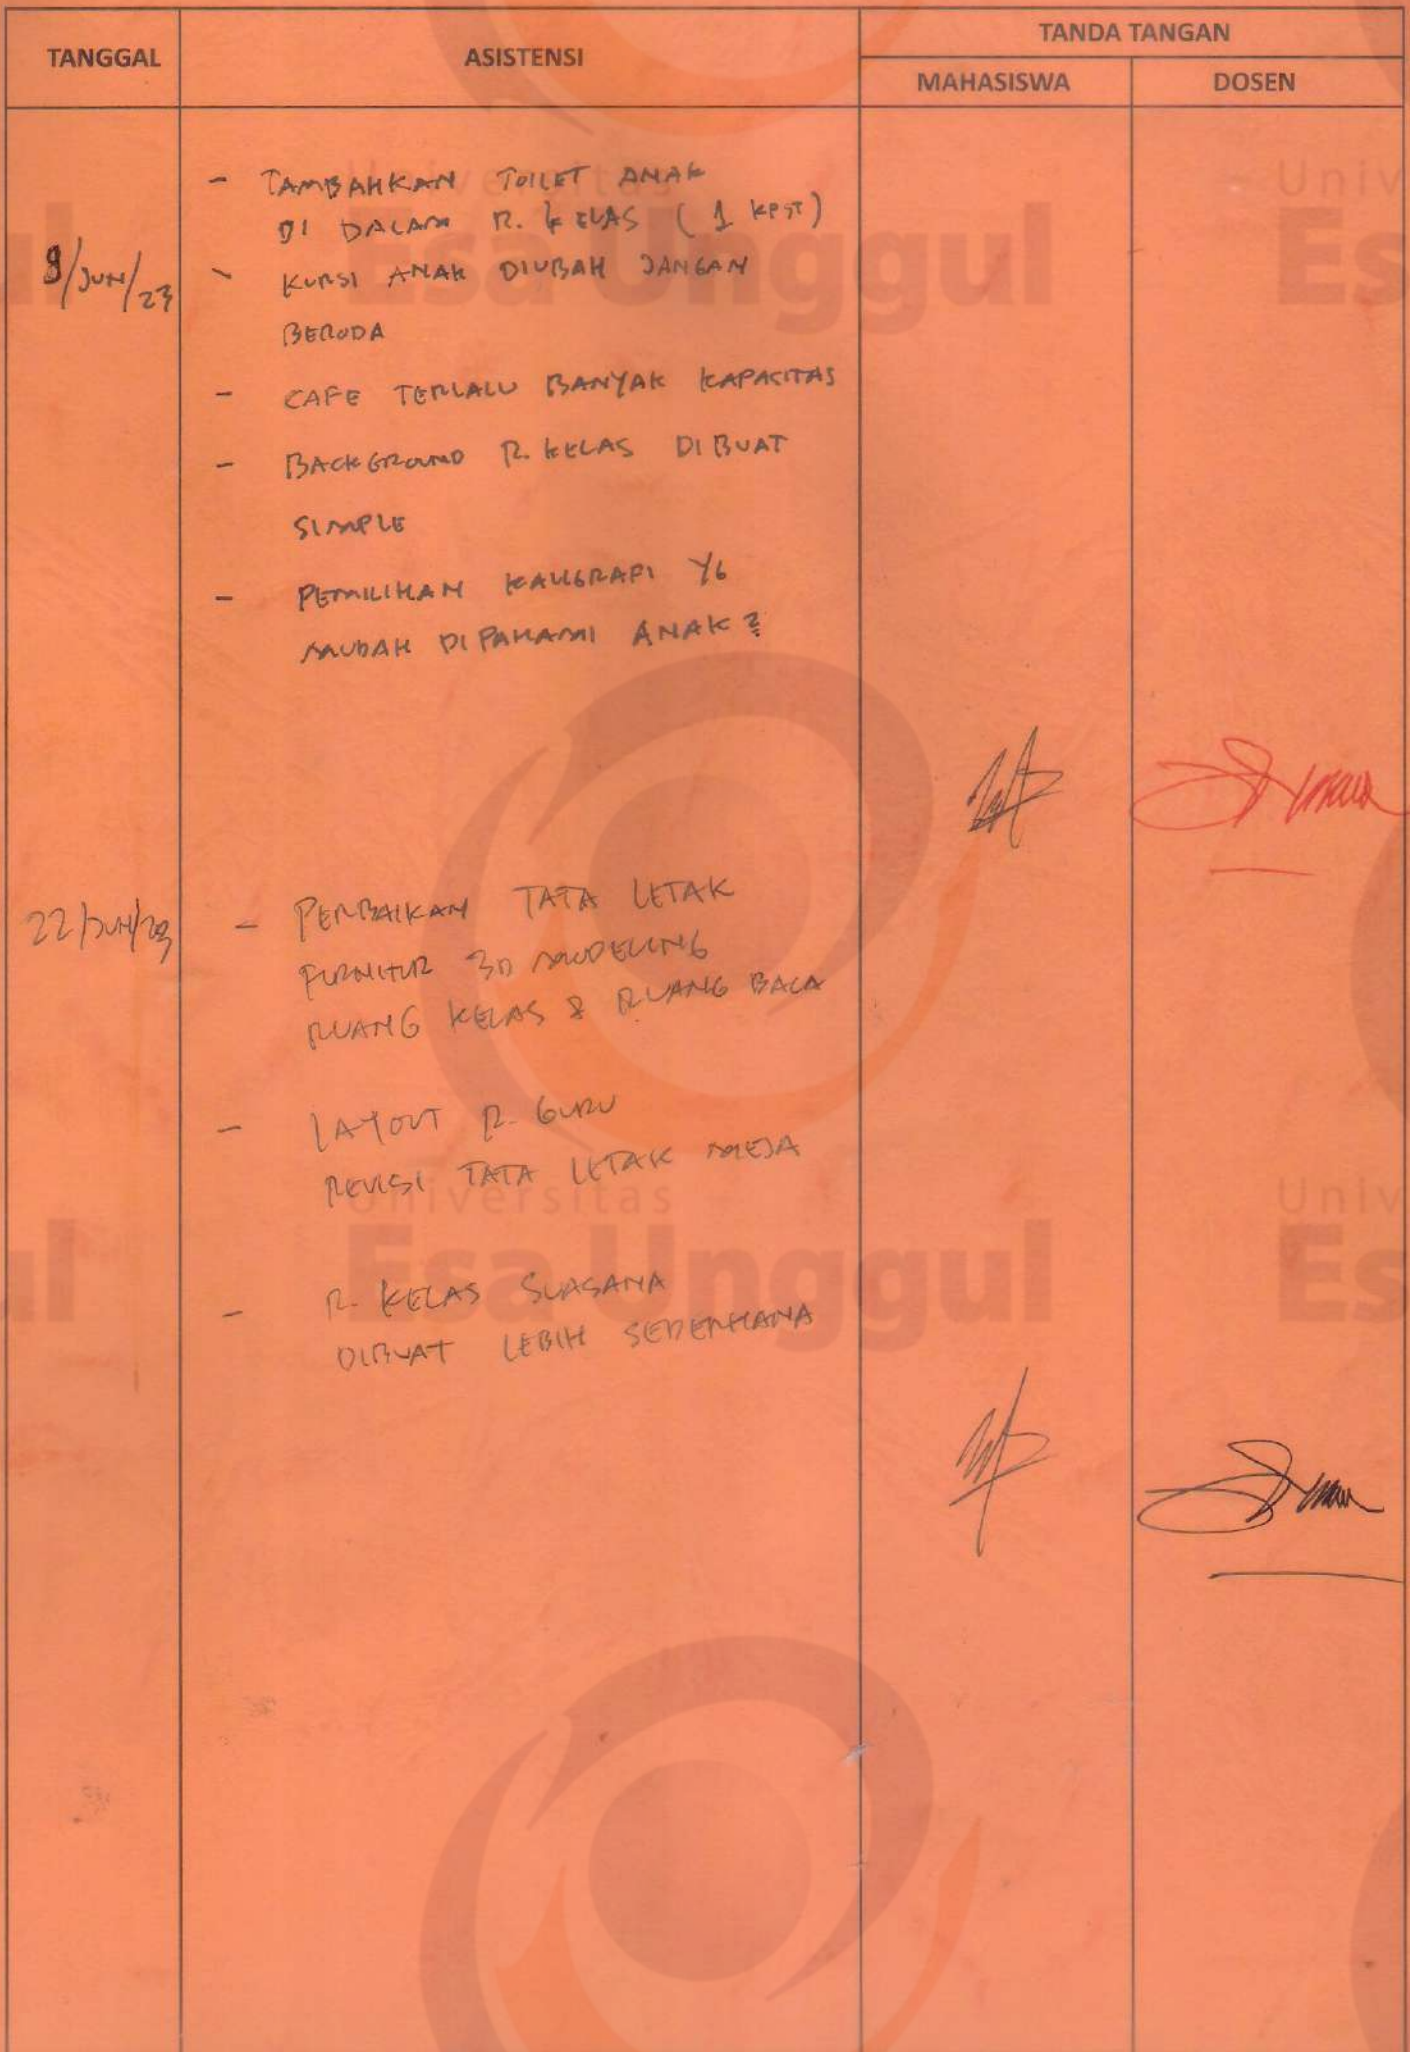 TANGGAL
ASISTENSI
TANDA TANGAN
MAHASISWA
DOSEN
- TAMBAHKAN TOILET ANAK
DI DALAM R. KELAS (1 KPST)
8/JUN/23
- KURSI ANAK DIUBAH JANGAN
BERODA
- CAFE TERLALU BANYAK KAPASITAS
- BACKGROUND R. KELAS DIBUAT
SIMPLE
- PEMILIHAN KALIGRAFI YG
MUDAH DIPAHAMI ANAK2
22/JUN/23
- PERBAIKAN TATA LETAK
FURNITUR 3D MODELING
RUANG KELAS & RUANG BACA
- LAYOUT R. GURU
REVISI TATA LETAK MEJA
- R. KELAS SUASANA
DIBUAT LEBIH SEDERHANA
Universitas
Esa Unggul
Univ
Es
ul
Universitas
Esa Unggul
Univ
Es
ul